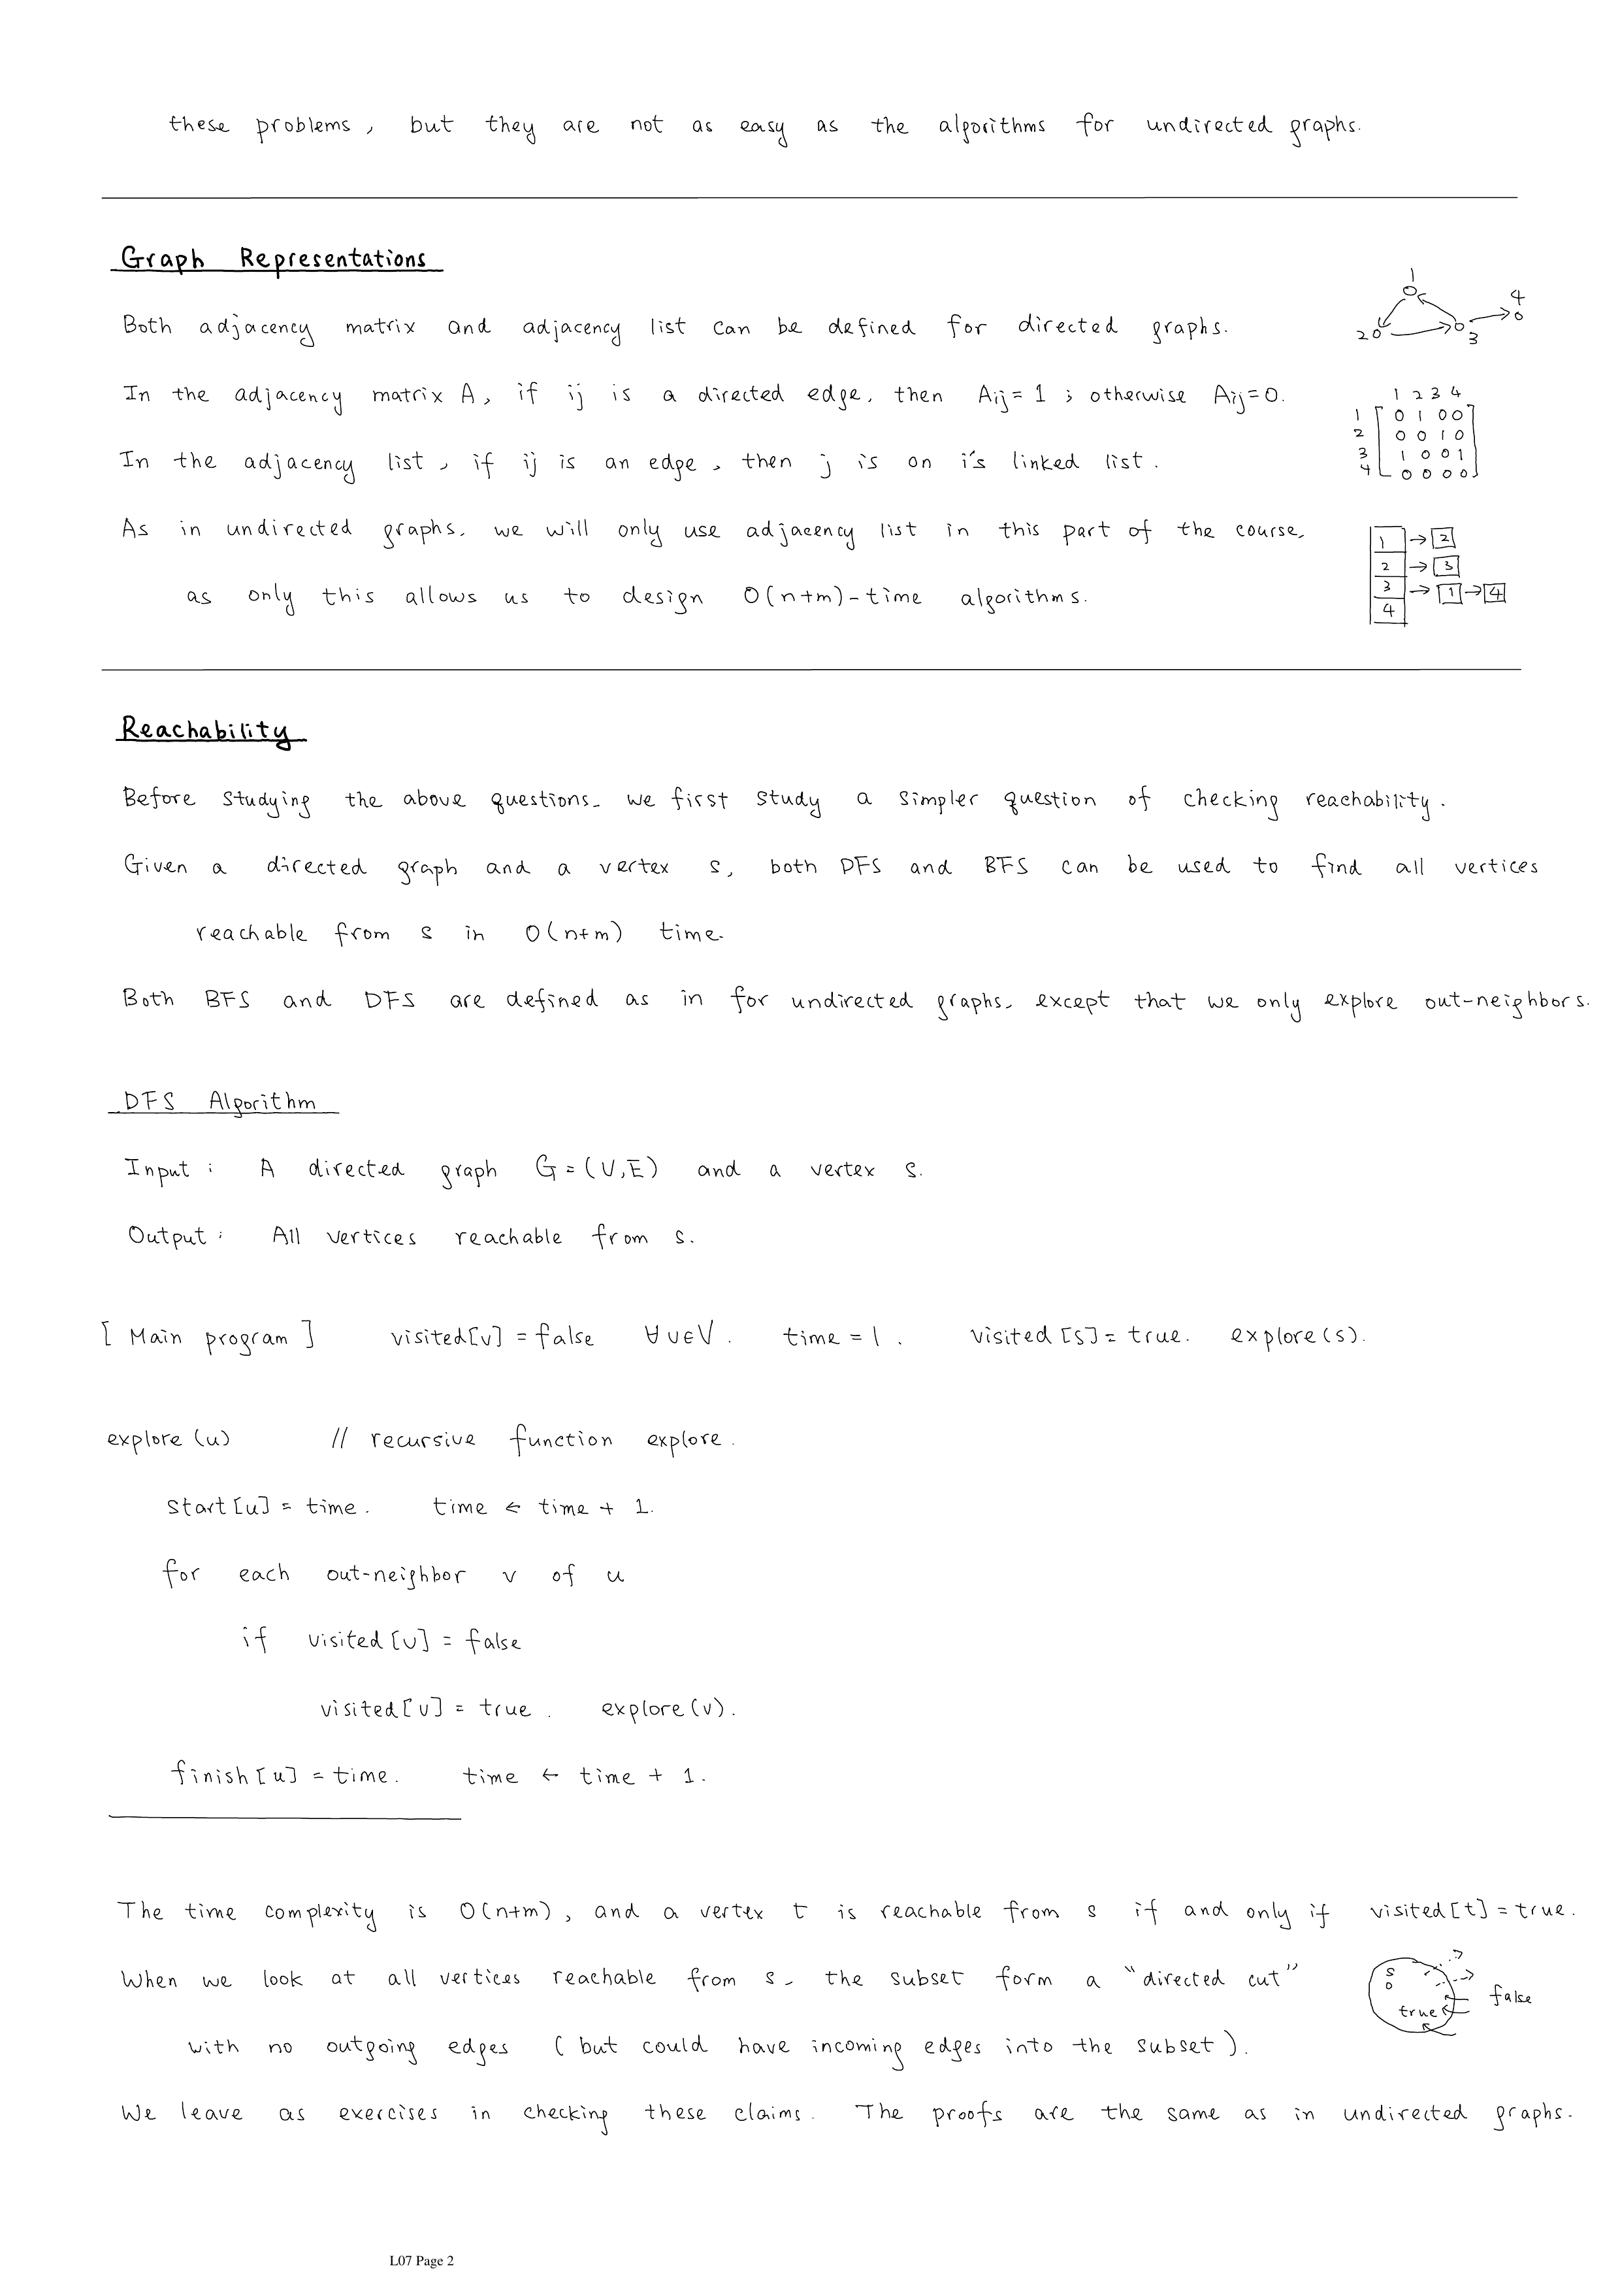 these problems, but they are not as easy as the algorithms for undirected graphs.
Graph Representations
Both adjacency matrix and adjacency list can be defined for directed graphs.
In the adjacency matrix A, if ij is a directed edge, then Aij=1; otherwise Aij=0.
In the adjacency list, if ij is an edge, then j is on i's linked list.
As in undirected graphs, we will only use adjacency list in this part of the course,
as only this allows us to design O(n+m)-time algorithms.
1
4
2
3
1 2 3 4
1 [ 0 1 0 0 ]
2 0 0 1 0
3 1 0 0 1
4 [ 0 0 0 0 ]
1 → 2
2 → 3
3 → 1 → 4
4
Reachability
Before studying the above questions, we first study a simpler question of checking reachability.
Given a directed graph and a vertex s, both DFS and BFS can be used to find all vertices
reachable from s in O(n+m) time.
Both BFS and DFS are defined as in for undirected graphs, except that we only explore out-neighbors.
DFS Algorithm
Input: A directed graph G=(V,E) and a vertex s.
Output: All vertices reachable from s.
[ Main program ] visited[v] = false ∀v∈V. time = 1. visited[s] = true. explore(s).
explore(u) // recursive function explore.
start[u] = time. time ← time + 1.
for each out-neighbor v of u
if visited[v] = false
visited[v] = true. explore(v).
finish[u] = time. time ← time + 1.
The time complexity is O(n+m), and a vertex t is reachable from s if and only if visited[t] = true.
When we look at all vertices reachable from s, the subset form a "directed cut"
with no outgoing edges (but could have incoming edges into the subset).
s
true
false
We leave as exercises in checking these claims. The proofs are the same as in undirected graphs.
L07 Page 2